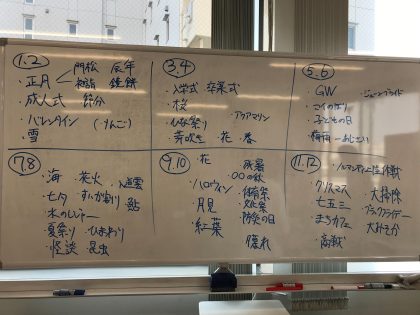 1.2
・正月 門松 辰年
初詣 鏡餅
・成人式 節分
・バレンタイン (りんご)
・雪
3.4
・入学式 卒業式
・桜
・ひな祭り アクアマリン
・芽吹き 花・春
5.6
・GW ジューンブライド
・こいのぼり
・子どもの日
・梅雨-あじさい
7.8
・海 ・花火 入道雲
・七夕 すいか割り 鮎
・水の
・夏祭り ・ひまわり
・怪談 昆虫
9.10
・花 残暑
〇〇の秋
・ハロウィン ・体育祭
・月見 ・文化祭
・紅葉 ・防災の日
・穫れ
11.12
・ノルマンディー上陸作戦
・クリスマス 大掃除
・七五三 ブラックフライデー
・まちカフェ 大みそか
・高戦